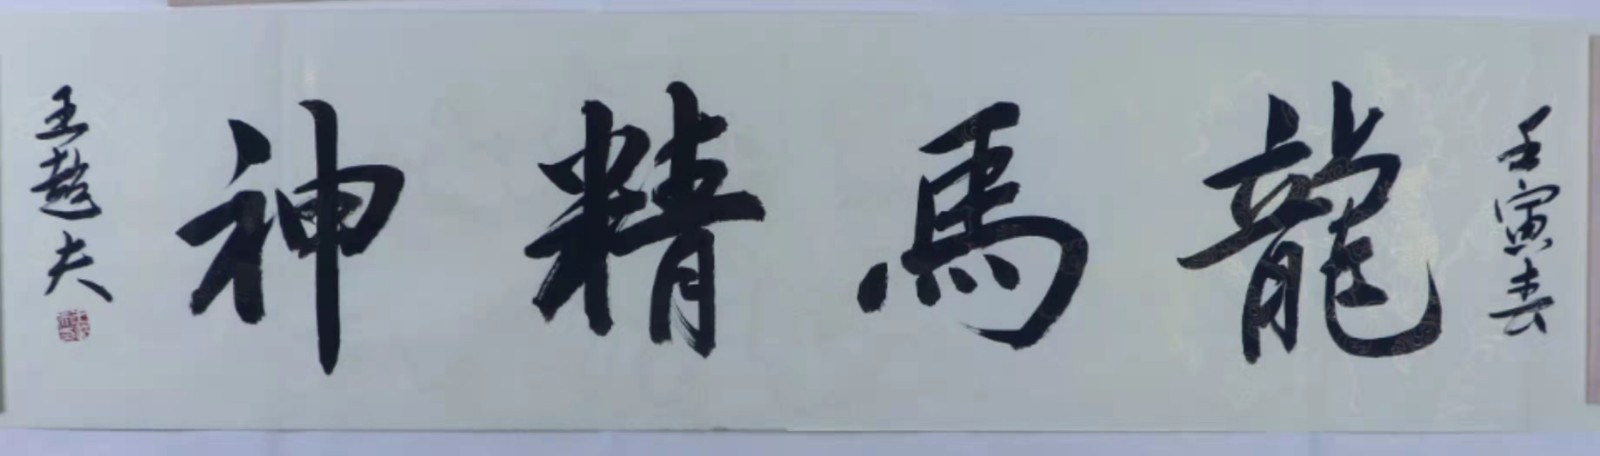 壬寅春
龍馬精神
王越夫